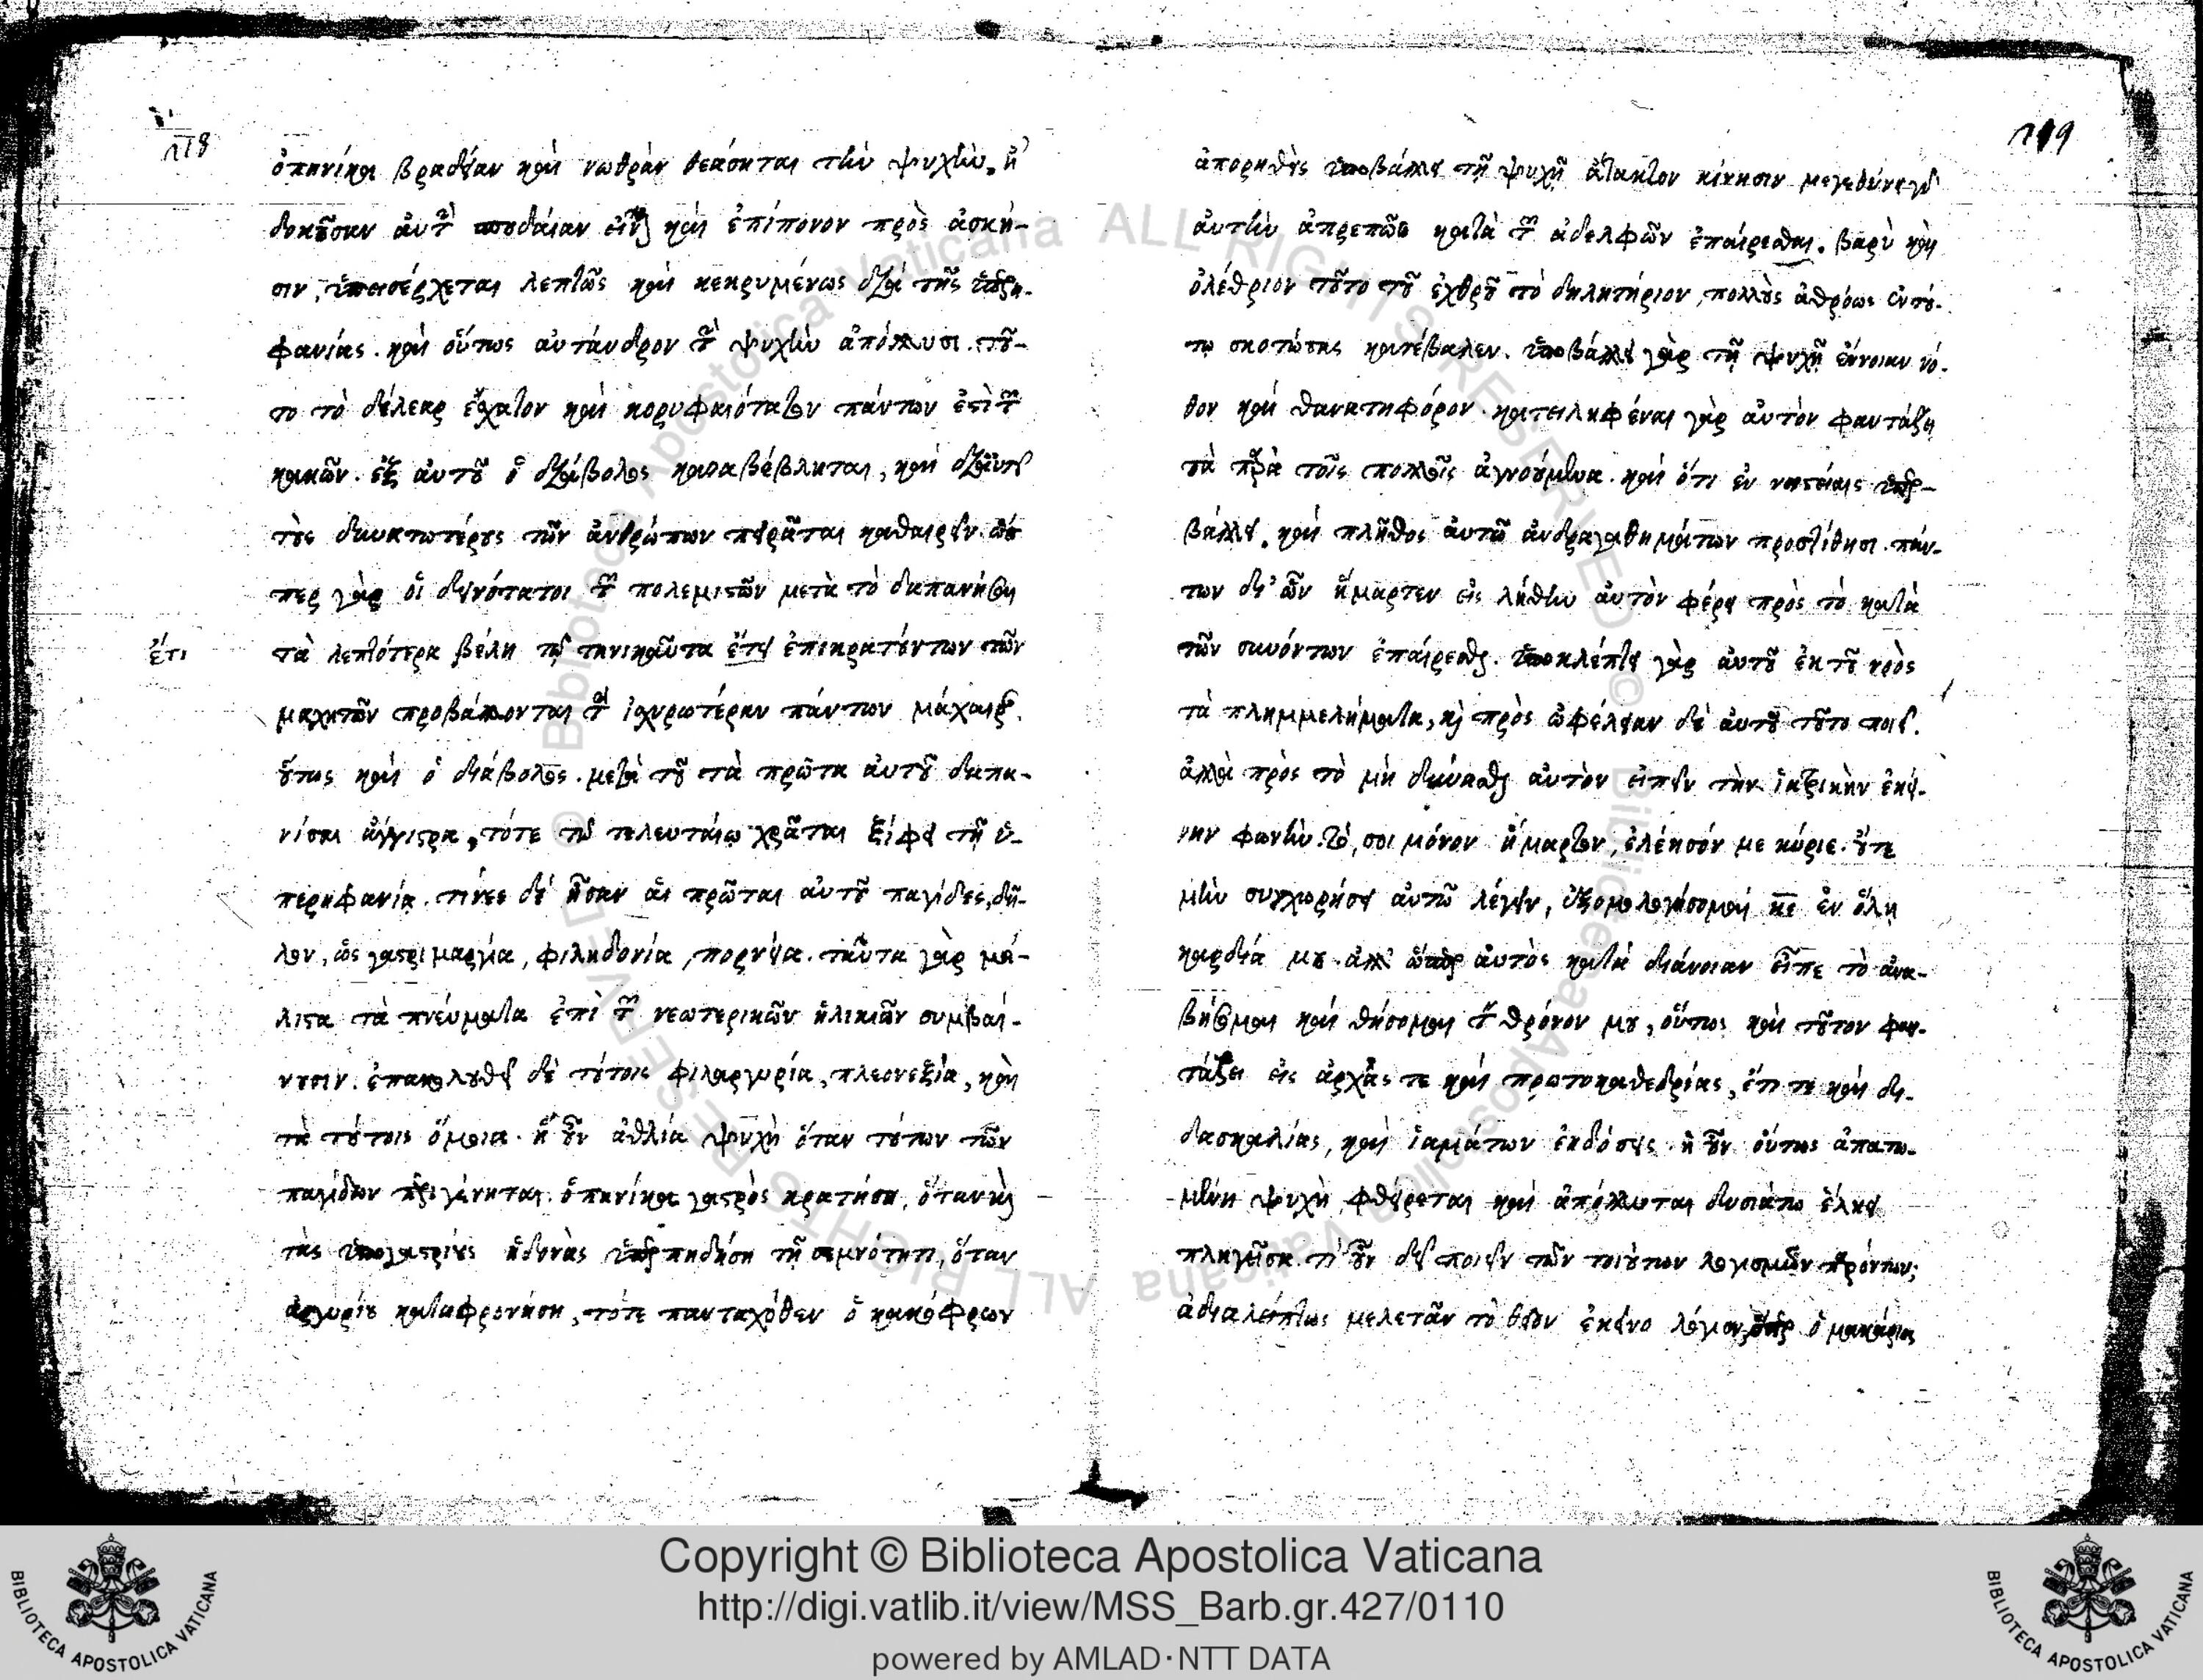 118
ὁπηνίκα βραδεῖαν καὶ νωθρὰν θεάσηται τὴν ψυχὴν. ἢ
δοκοῦσαν αὐτὴν σπουδαίαν εἶναι καὶ ἐπίπονον πρὸς ἄσκη-
σιν, ὑπεισέρχεται λεπτῶς καὶ κεκρυμένως διὰ τῆς ὑπερη-
φανίας. καὶ οὕτως αὐτάνδρον τὴν ψυχὴν ἀπόλλυσι. τοῦ-
το τὸ δέλεαρ ἔσχατον καὶ κορυφαιότατον πάντων ἐστὶ τῶν
κακῶν. ἐξ αὐτοῦ ὁ διάβολος καταβέβληται, καὶ διὰ αὐτοῦ
τοὺς δυνατωτέρους τῶν ἀνθρώπων πειρᾶται καθαιρεῖν. ὥσ
περ γὰρ οἱ δεινότατοι τῶν πολεμιστῶν μετὰ τὸ δαπανῆσαι
τὰ λεπτότερα βέλη τῷ τηνικαῦτα ἔτει ἐπικρατούντων τῶν
ἔτι
μαχητῶν προβάλλονται τὴν ἰσχυρωτέραν πάντων μάχαιραν.
οὕτως καὶ ὁ διάβολος. μετὰ τοῦ τὰ πρῶτα αὐτοῦ δαπα-
νίσαι ἄγγιστρα, τότε τῷ τελευταίῳ χρᾶται ξίφει τῇ ὑ-
περηφανίᾳ. τίνες δὲ ἦσαν αἱ πρῶται αὐτοῦ παγίδες, δῆ-
λον, ὡς γαστριμαργία, φιληδονία, πορνεία. ταῦτα γὰρ μά-
λιστα τὰ πνεύματα ἐπὶ τῶν νεωτερικῶν ἡλικιῶν συμβαί-
νουσιν. ἐπακολουθεῖ δὲ τούτοις φιλαργυρία, πλεονεξία, καὶ
τὰ τούτοις ὅμοια. ἡ οὖν ἀθλία ψυχὴ ὅταν τούτων τῶν
παγίδων περιγένηται. ὁπηνίκα γαστρὸς κρατήσῃ, ὅταν καὶ
τὰς ὑπογαστρίους ἡδονὰς ὑπερπηδήσῃ τῇ σεμνότητι, ὅταν
ἀργυρίου καταφρονήσῃ, τότε πανταχόθεν ὁ κακόφρων
119
ἀπορηθεὶς ὑποβάλλει τῇ ψυχῇ ἄτακτον κίνησιν μεγεθύνει γὰρ
αὐτὴν ἀπρεπῶς κατὰ τῶν ἀδελφῶν ἐπαίρεσθαι. βαρὺ καὶ
ὀλέθριον τοῦτο τοῦ ἐχθροῦ τὸ δηλητήριον, πολλοὺς ἀθρόως ἐν τού-
τῳ σκοτώσας κατέβαλεν. ὑποβάλλει γὰρ τῇ ψυχῇ ἔννοιαν νό-
θον καὶ θανατηφόρον. κατειληφέναι γὰρ αὐτὸν φαντάζει
τὰ παρὰ τοῖς πολλοῖς ἀγνοούμενα. καὶ ὅτι ἐν νηστείαις ὑπερ-
βάλλει. καὶ πλῆθος αὐτῷ ἀνδραγαθημάτων προστίθησι. πάν-
των δι' ὧν ἥμαρτεν εἰς λήθην αὐτὸν φέρει πρὸς τὸ κατὰ
τῶν συνόντων ἐπαίρεσθαι. ὑποκλέπτει γὰρ αὐτοῦ ἐκ τοῦ νοὸς
τὰ πλημμελήματα, καὶ πρὸς ὠφέλειαν δὲ αὐτοῦ τοῦτο ποιεῖ.
ἀλλὰ πρὸς τὸ μὴ δύνασθαι αὐτὸν εἰπεῖν τὴν ἰατρικὴν ἐκεί-
νην φωνὴν. τό, σοι μόνον ἥμαρτον, ἐλέησόν με κύριε. οὔτε
μὴν συγχωρήσει αὐτῷ λέγειν, ἐξομολογήσομαί κε ἐν ὅλῃ
καρδίᾳ μου. ἀλλ' ὥσπερ αὐτὸς κατὰ διάνοιαν εἶπε τὸ ἀνα-
βήσομαι καὶ θήσομαι τὸν θρόνον μου, οὕτως καὶ τοῦτον φαν-
τάζει εἰς ἀρχάς τε καὶ πρωτοκαθεδρίας, ἔτι τε καὶ δι-
δασκαλίας, καὶ ἰαμάτων ἐκδόσεις. ἡ οὖν οὕτως ἀπατω-
μένη ψυχὴ φθείρεται καὶ ἀπόλλυται δυσιάτῳ ἕλκει
πληγεῖσα. τί οὖν δεῖ ποιεῖν τῶν τοιούτων λογισμῶν παρόντων;
ἀδιαλείπτως μελετᾶν τὸ θεῖον ἐκεῖνο λόγιον, ὅπερ ὁ μακάριος
Copyright © Biblioteca Apostolica Vaticana
http://digi.vatlib.it/view/MSS_Barb.gr.427/0110
powered by AMLAD·NTT DATA